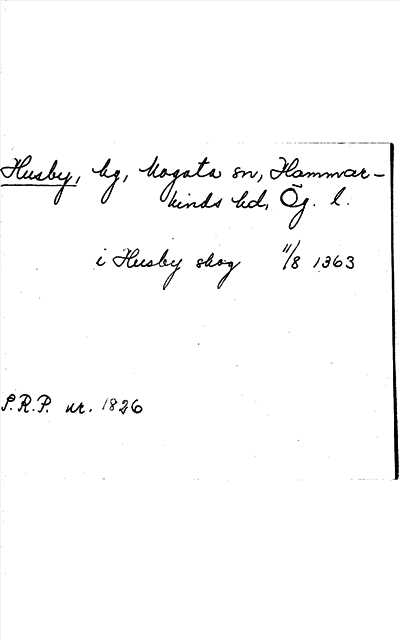 Husby, by, Mogata sn, Hammar-
kinds hd, Ög. l.
i Husby skog 11/8 1363
S.R.P. nr. 1826